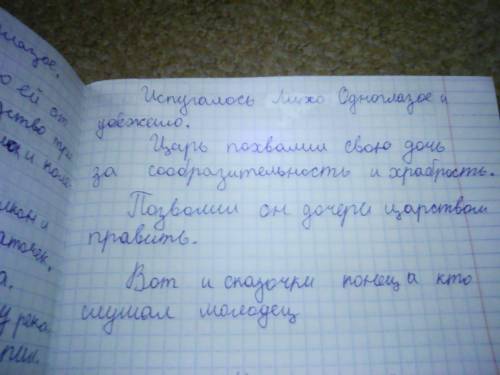 лазое.
о ей от
дство тра
ла и поле
икон и
аточек.
а.
у река
Испугалось Лихо Одноглазое и
убежело.
Царь похвалил свою дочь
за сообразительность и храбрость.
Позволил он дочери царством
править.
Вот и сказочки конец а кто
слушал молодец